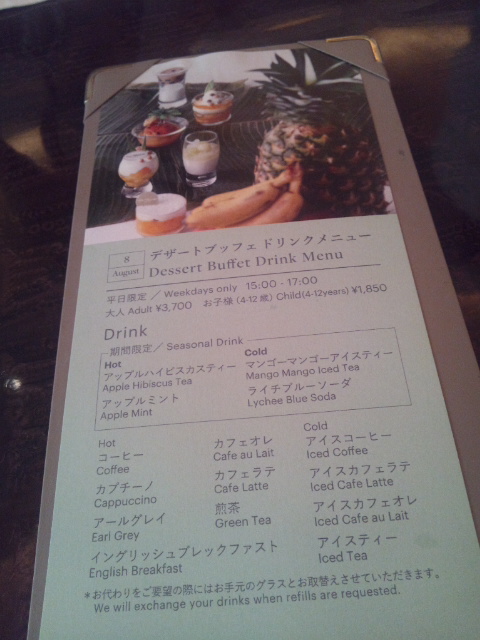 8
August
デザートブッフェ ドリンクメニュー
Dessert Buffet Drink Menu
平日限定 / Weekdays only 15:00 - 17:00
大人 Adult ¥3,700 お子様 (4-12 歳) Child(4-12years) ¥1,850
Drink
期間限定 / Seasonal Drink
Hot
アップルハイビスカスティー
Apple Hibiscus Tea
アップルミント
Apple Mint
Cold
マンゴーマンゴーアイスティー
Mango Mango Iced Tea
ライチブルーソーダ
Lychee Blue Soda
Hot
コーヒー
Coffee
カプチーノ
Cappuccino
アールグレイ
Earl Grey
イングリッシュブレックファスト
English Breakfast
カフェオレ
Cafe au Lait
カフェラテ
Cafe Latte
煎茶
Green Tea
Cold
アイスコーヒー
Iced Coffee
アイスカフェラテ
Iced Cafe Latte
アイスカフェオレ
Iced Cafe au Lait
アイスティー
Iced Tea
*お代わりをご要望の際にはお手元のグラスとお取替えさせていただきます。
We will exchange your drinks when refills are requested.